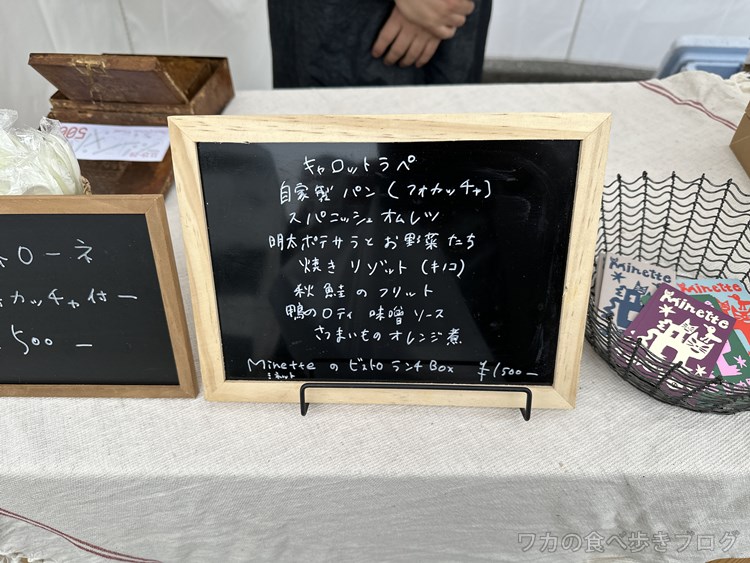 キャロットラペ
自家製 パン (フォカッチャ)
スパニッシュオムレツ
明太ポテサラとお野菜たち
焼きリゾット (キノコ)
秋鮭のフリット
鴨のロティ 味噌ソース
さつまいものオレンジ煮
MinetteのビストロランチBox ¥1500-
ミネット
ローネ
カッチャ付ー
500 ー
500
Minette
Minette
Minette
ワカの食べ歩きブログ